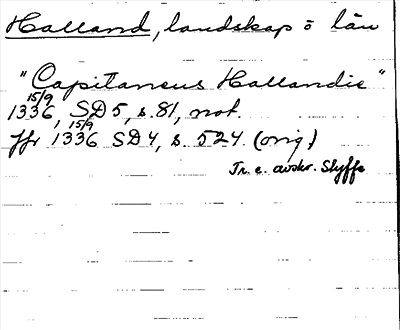 Halland, landskap o län
"Capitaneus Hallandie"
1336 15/9, SD 5, s. 81, not.
Jfr 1336 15/9 SD 4, s. 524. (orig)
Tr. e. avskr. Styffe